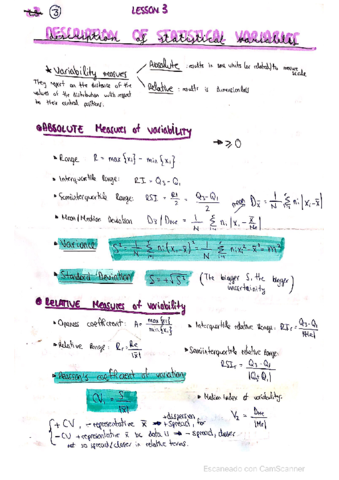 ③
LESSON 3
DESCRIPTION OF STATISTICAL VARIABLES
* Variability measures
They report on the distance of the values of the distribution with respect to their central positions.
Absolute: results in same units (or related) to measure scale
Relative: results is dimensionless
① ABSOLUTE Measures of variability
→ ≥ 0
• Range R = max{xi} - min{xi}
• Interquartile Range: RI = Q3 - Q1
• Semiinterquartile Range: RSI = RI/2 = (Q3 - Q1)/2
• Mean/Median Deviation Dx̄ / DMe = 1/N Σ ni |xi - x̄/Me|
mean Dx̄ = 1/N Σ ni |xi - x̄|
• Variance S² = 1/N Σ ni (xi - x̄)² = 1/N Σ ni xi² - x̄² = m²
• Standard Deviation S = +√S² (The bigger S, the bigger uncertainty)
② RELATIVE Measures of variability
• Openess coefficient: A = max{xi}/min{xi}
• Interquartile relative Range: RIr = (Q3 - Q1)/|Me|
• Relative Range: Rr = Re/|x̄|
• Semiinterquartile relative range:
RSIr = (Q3 - Q1)/|Q3 + Q1|
• Pearson's coefficient of variation
V1 = S/|x̄|
• Median index of variability:
V2 = DMe/|Me|
+ CV, - representative x̄ → + dispersion, + spread, far
- CV + representative x̄ be data is → - spread, closer
not so spread/closer in relative terms.
Escaneado con CamScanner